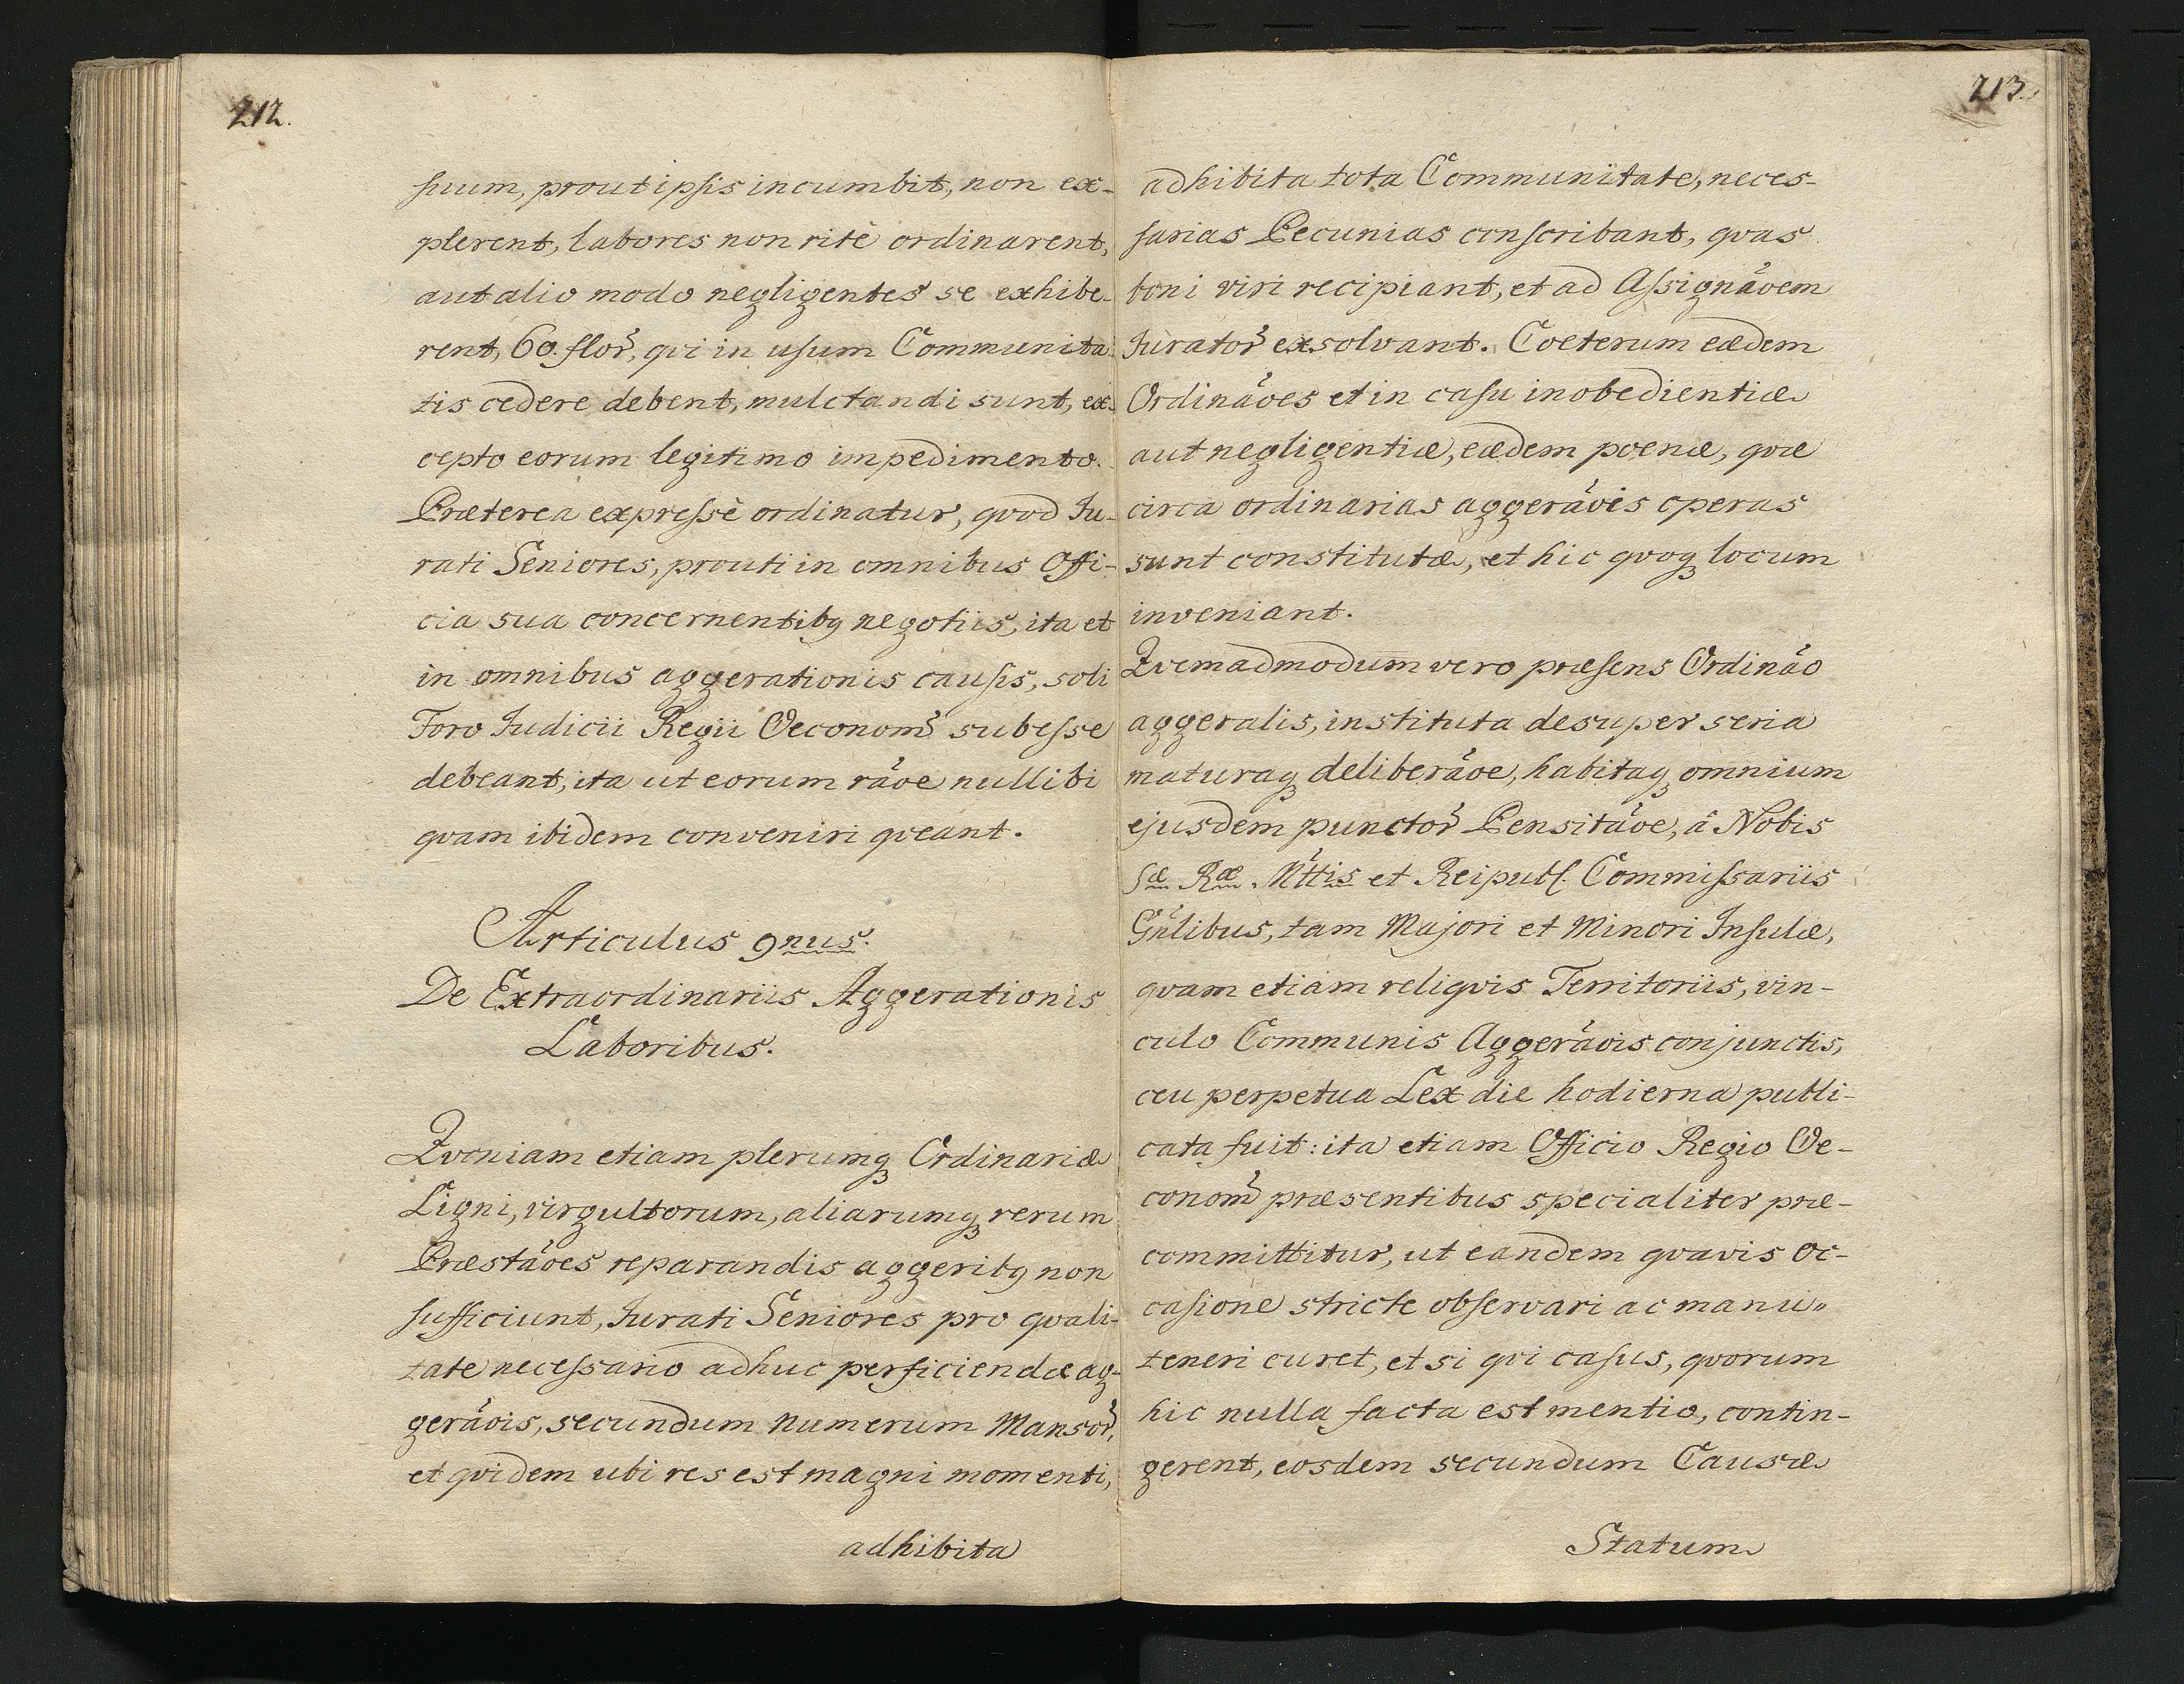 212.
suum, prout ipsis incumbit, non ex-
plerent, labores non ritè ordinarent,
aut alio modo negligentes se exhibe-
rent, 60. flor̃, qvi in usum Communita-
tis cedere debent, mulctandi sunt, ex-
cepto eorum legitimo impedimento.
Præterea expressè ordinatur, qvod Ju-
rati Seniores, prouti in omnibus Offi-
cia sua concernentibꝰ negotiis, ita et
in omnibus aggerationis causis, soli
Foro Judicii Regii Oeconom̃ subesse
debeant, ita ut eorum rãoe nullibi
qvam ibidem conveniri qveant.
Articulus 9nus.
De Extraordinariis Aggerationis
Laboribus.
Qvoniam etiam plerumqꝫ Ordinariæ
Ligni, virgultorum, aliarumqꝫ rerum
Præstãoes reparandis aggeribꝰ non
sufficiunt, Jurati Seniores pro qvali-
tate necessario adhuc perficiendæ ag-
gerãois, secundum numerum Mansor̃,
et qvidem ubi res est magni momenti,
adhibita
213.
adhibita tota Communitate, neces-
sarias Pecunias conscribant, qvas
boni viri recipiant, et ad Assignãoem
Jurator̃ exsolvant. Coeterum eædem
Ordinãoes et in casu inobedientiæ
aut negligentiæ, eædem poenæ, qvæ
circa ordinarias aggerãois operas
sunt constitutæ, et hic qvoqꝫ locum
inveniant.
Qvemadmodum vero præsens Ordinão
aggeralis, instituta desuper seria
maturaqꝫ deliberãoe, habitaqꝫ omnium
ejusdem punctor̃ Pensitãoe, â Nobis
Sæ Ræ. Mttis et Reipubl. Commissariis
Gñlibus, tam Majori et Minori Insulæ,
qvam etiam reliqvis Territoriis, vin-
culo Communis Aggerãois conjunctis,
ceu perpetua Lex die hodierna publi-
cata fuit: ita etiam Officio Regio Oe-
conom̃ præsentibus specialiter præ-
committitur, ut eandem qvavis oc-
casione stricte observari ac manu-
teneri curet, et si qvi casus, qvorum
hic nulla facta est mentio, contin-
gerent, eosdem secundum Causæ
Statum